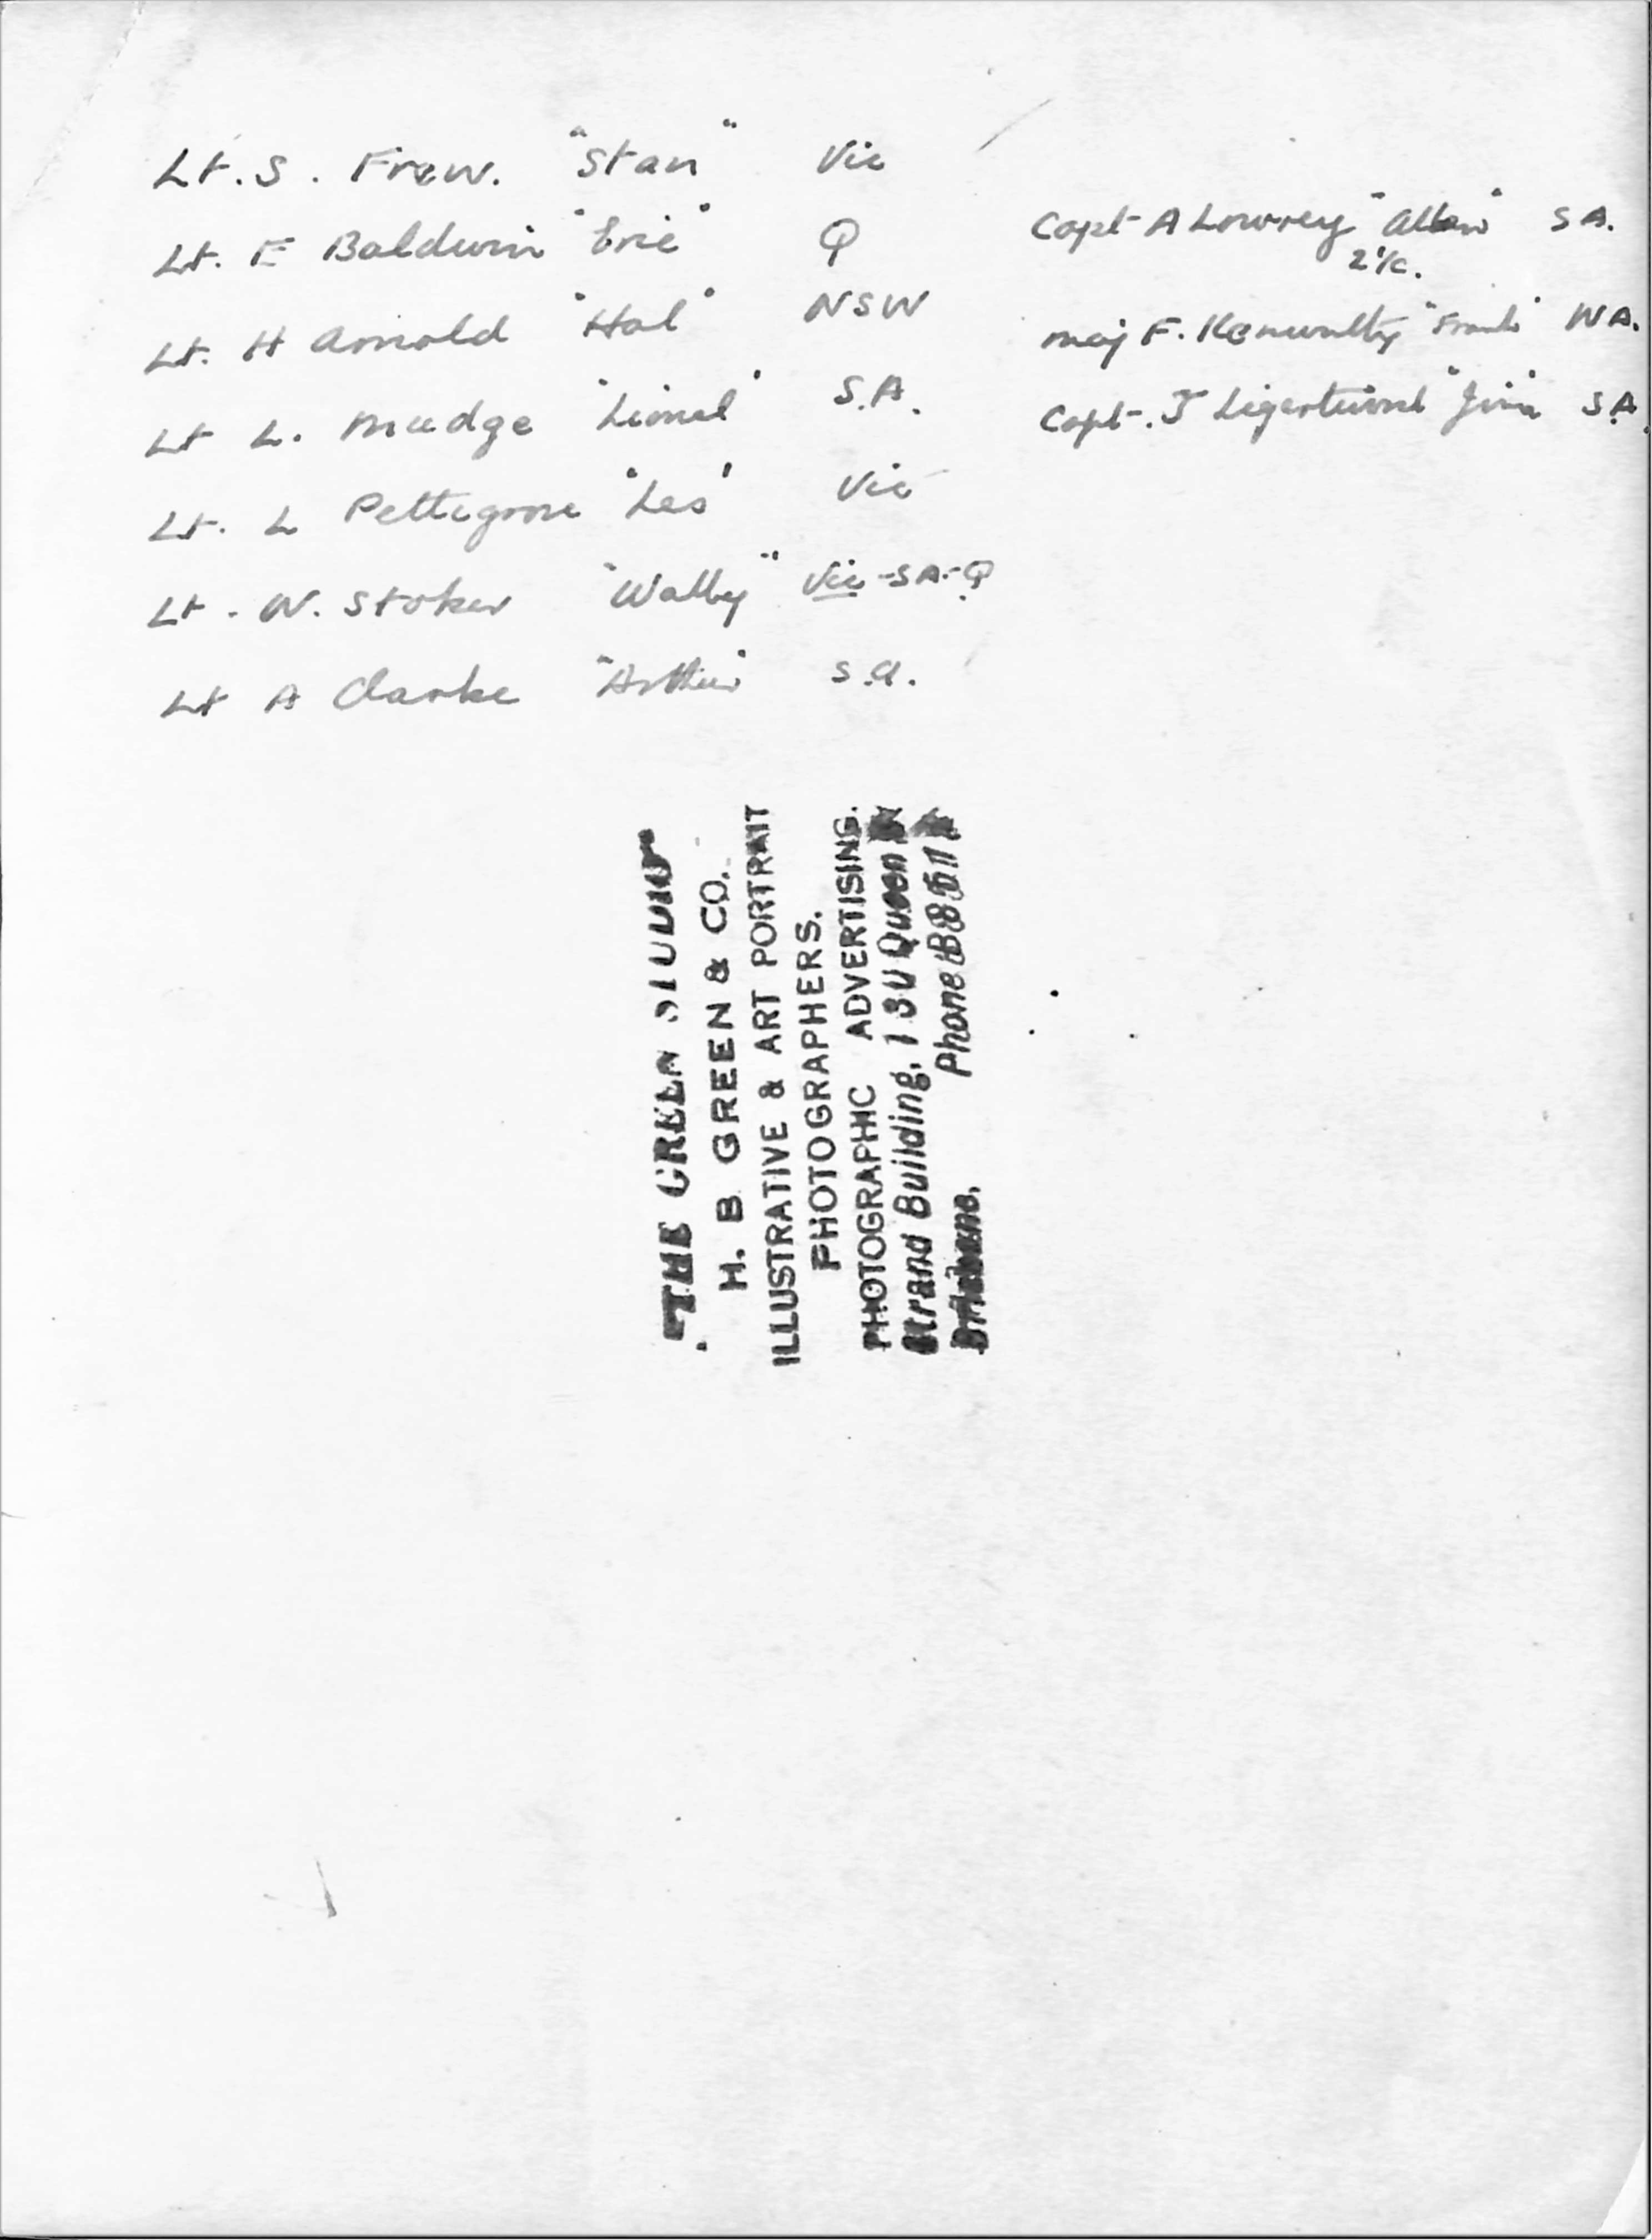 Lt. S. Frew. "Stan" Vic
Lt. E Baldwin "Eric" Q
Lt. H Arnold "Hal" NSW
Lt L. Mudge "Lionel" S.A.
Lt. L Pettigrove "Les" Vic
Lt. W. Stoker "Wally" Vic-SA-Q
Lt A Clarke "Arthur" S.A.
Capt A Lowrey "Allan" SA.
2 I/c.
Maj F. "Frank" WA.
Capt. J Ligertwood "Jim" SA.
"THE GREEN STUDIO"
H. B. GREEN & CO.
ILLUSTRATIVE & ART PORTRAIT
PHOTOGRAPHERS.
PHOTOGRAPHIC ADVERTISING.
Strand Building, Queen
Brisbane. Phone